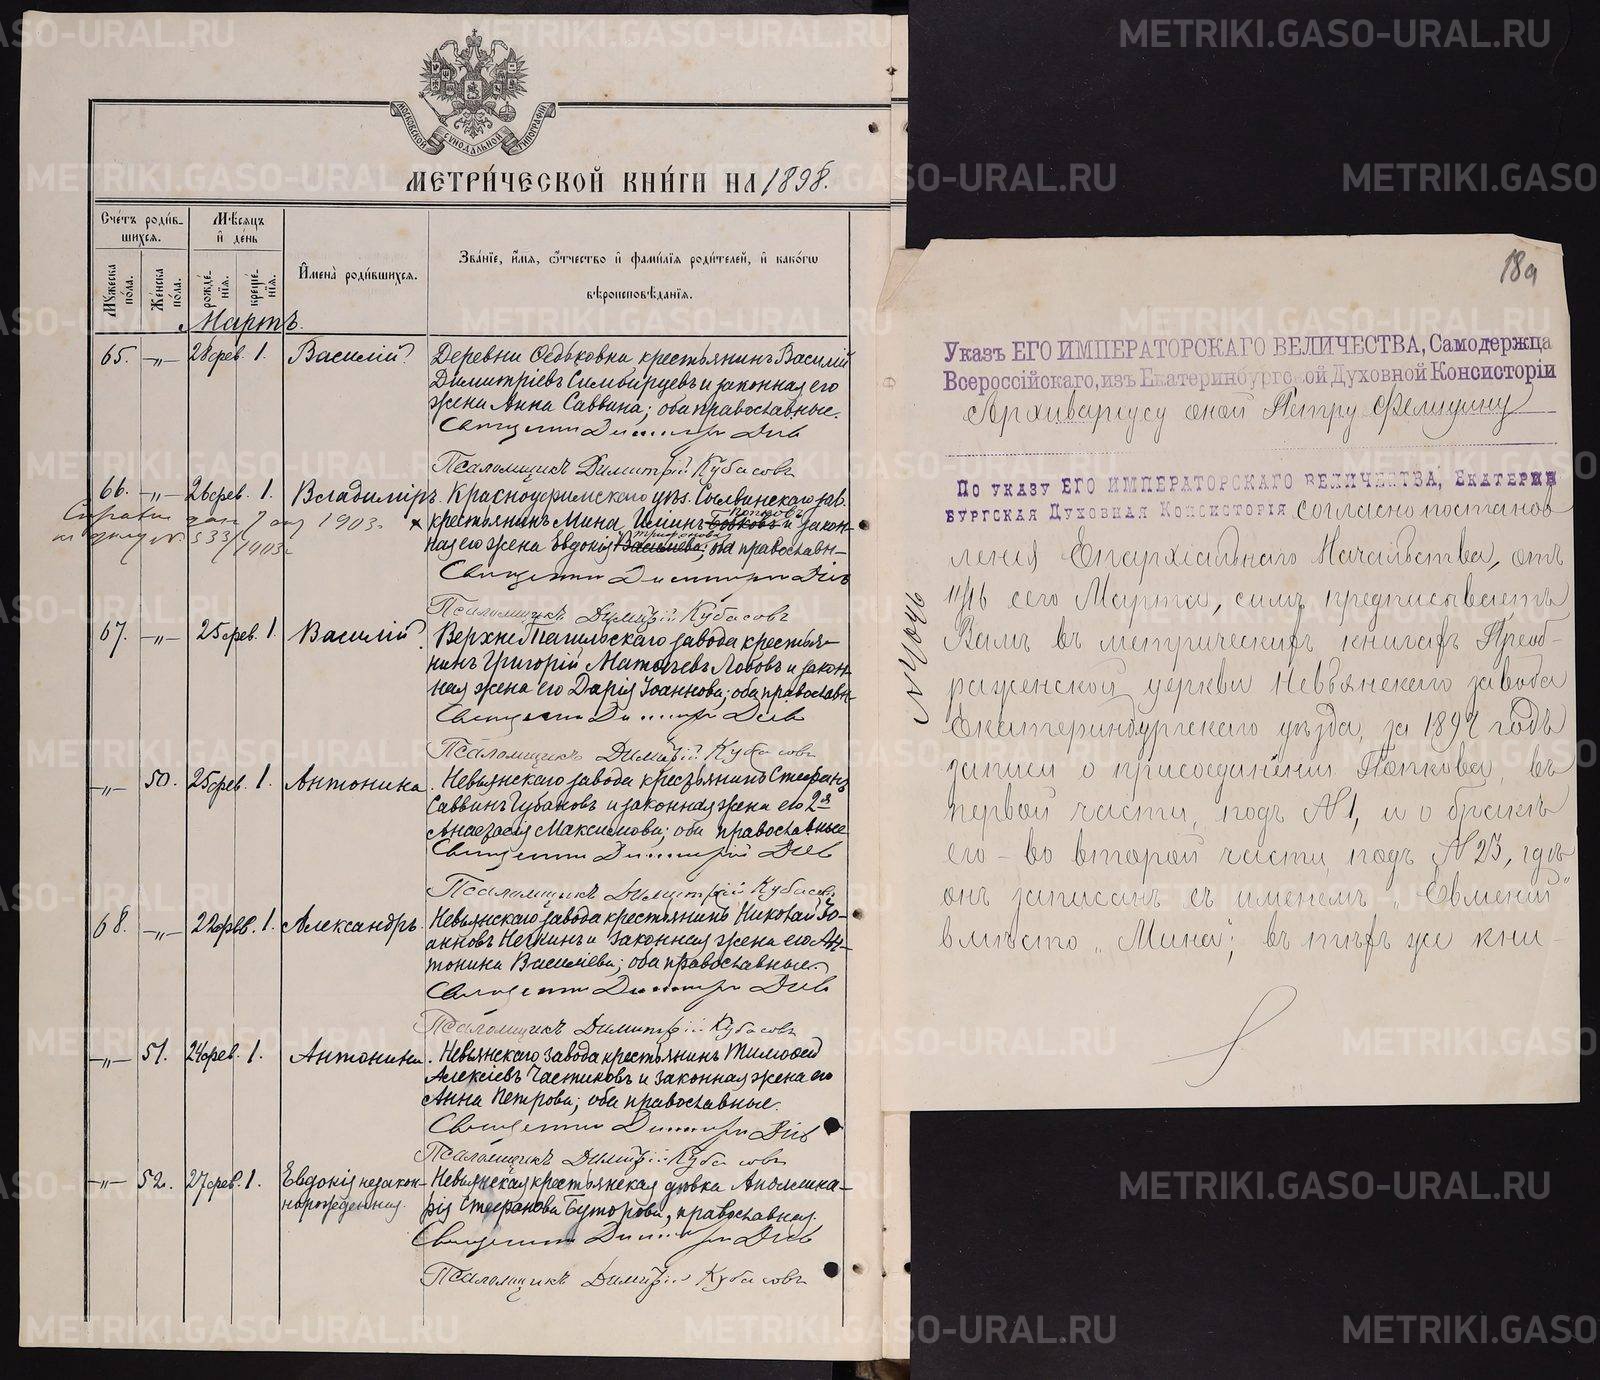 МОСКОВСКОЙ СѴНОДАЛЬНОЙ ТИПОГРАФІИ
МЕТРИ́ЧЕСКОЙ КНИ́ГИ НА 1898.
Сче́тъ роди́в-
шихся.
Мѣсяцъ
и҆ де́нь
И҆мена̀ роди́вшихся.
Зва́нїе, и҆́мѧ, ѻ҆́тчество и҆ фами́лїѧ роди́телей, и҆ како́гѡ
вѣроисповѣ́данїѧ.
Мꙋжеска по́ла.
Же́нска по́ла.
рожде́нїѧ.
креще́нїѧ.
Мартъ.
65. -„- 28 фев. 1. Василій Деревни Ѳедьковки крестьянинъ Василій
Димитріевъ Симбирцевъ и законная его
жена Анна Саввина; оба православные.
Священникъ Димитрій Діевъ
Псаломщикъ Димитрій Кубасовъ
66. -„- 26 фев. 1. Владиміръ. Красноуфимскаго уѣз. Сылвинскаго зав.
Попковъ
крестьянинъ Мина и закон-
Справка 1903 г.
Трифонова
ная его жена Евдокія Василіева; оба православн-
533/1903 г.
Священникъ Димитрій Діевъ
Псаломщикъ Димитрій Кубасовъ
67. -„- 25 фев. 1. Василій. Верхне Тагильскаго завода крестья-
нинъ Григорій Матѳеевъ Лобовъ и закон-
ная жена его Дарія Іоаннова; оба православн-
Священникъ Димитрій Діевъ
Псаломщикъ Димитрій Кубасовъ
-„- 50. 25 фев. 1. Антонина. Невьянскаго завода крестьянинъ Стефанъ
Саввинъ Губановъ и законная жена его 2я
Анастасія Максимова; оба православные
Священникъ Димитрій Діевъ
Псаломщикъ Димитрій Кубасовъ
68. -„- 22 фев. 1. Александръ. Невьянскаго завода крестьянинъ Николай Іо-
анновъ и законная жена его Ан-
тонина Василіева; оба православные.
Священникъ Димитрій Діевъ
Псаломщикъ Димитрій Кубасовъ
-„- 51. 24 фев. 1. Антонина. Невьянскаго завода крестьянинъ Тимоѳей
Алексіевъ Частиковъ и законная жена его
Анна Петрова; оба православные.
Священникъ Димитрій Діевъ
Псаломщикъ Димитрій Кубасовъ
-„- 52. 27 фев. 1. Евдокія незакон- Невьянская крестьянская дѣвка Аполлина-
норожденная. рія Стефанова Буторова, православная.
Священникъ Димитрій Діевъ
Псаломщикъ Димитрій Кубасовъ
18а
Указъ ЕГО ИМПЕРАТОРСКАГО ВЕЛИЧЕСТВА, Самодержца
Всероссійскаго, изъ Екатеринбургской Духовной Консисторіи
Архиваріусу оной Петру Фелицину
По указу ЕГО ИМПЕРАТОРСКАГО ВЕЛИЧЕСТВА, Екатерин
бургская Духовная Консисторія согласно постанов
ленія Епархіальнаго Начальства, отъ
11/16 сего Марта, симъ предписываетъ
Вамъ въ метрическихъ книгахъ Преоб-
раженской церкви Невьянскаго завода
Екатеринбургскаго уѣзда, за 1897 годъ
записи о присоединеніи Попкова, въ
первой части, подъ №1, и о бракѣ
его - во второй части, подъ №23, гдѣ
онъ записанъ съ именемъ „Евменій"
вмѣсто „Мина"; въ тѣхъ же кни-
№ 4046
METRIKI.GASO-URAL.RU